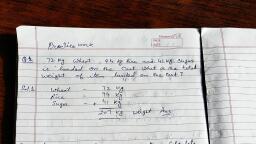 Practice work
Q.1 72 Kg Wheat, 94 Kg Rice and 41 Kg Sugar
is loaded on the Cart What is the total
weight of item loaded on the cart?
Sol. Wheat = 72 Kg
Rice = 94 Kg
Sugar = + 41 Kg
207 Kg weight Ans